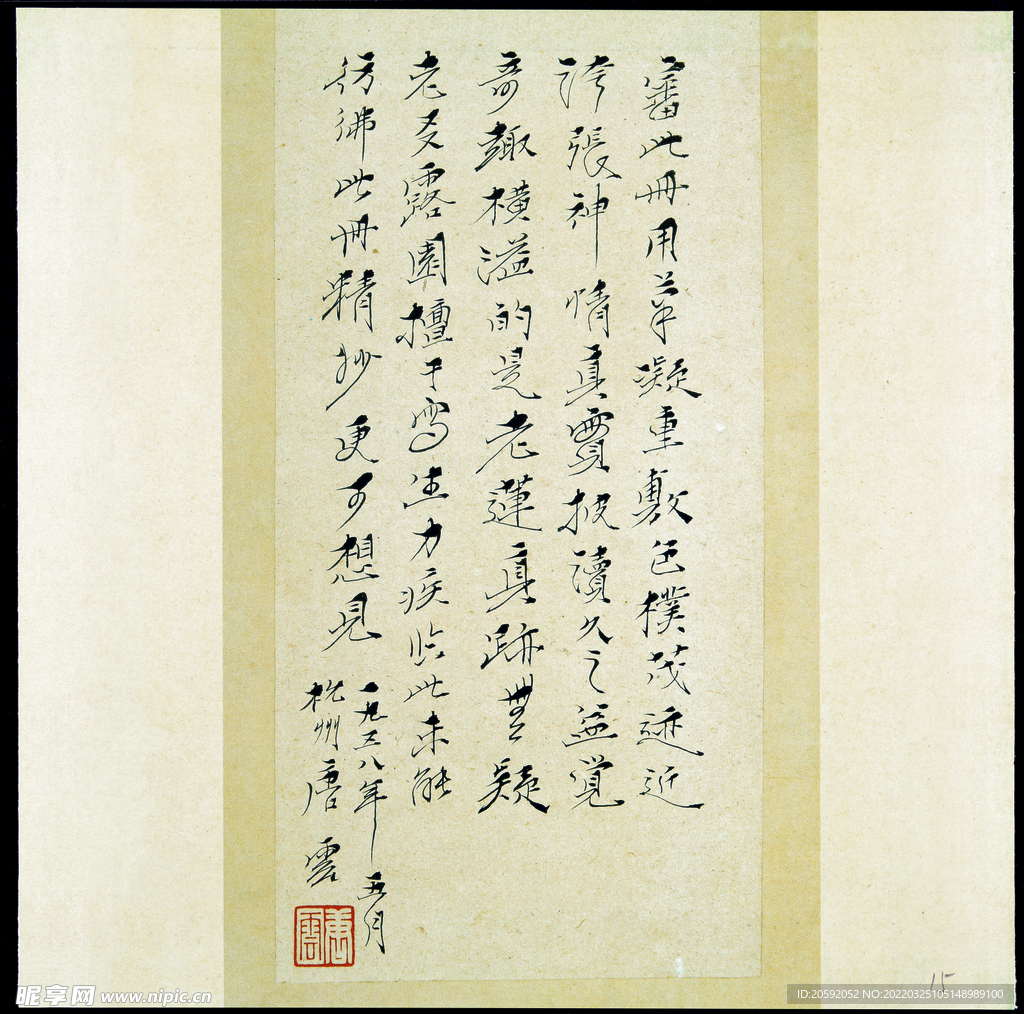 審此冊用筆凝重敷色樸茂迹近
誇張神情真實披讀久之益覺
奇趣橫溢的是老蓮真跡無疑
老友露園擅于寫生力疾臨此未能
彷彿此冊精妙更可想見
一九五八年五月
杭州唐雲
唐雲
15
昵享网 www.nipic.cn
ID:20592052 NO:20220325105148989100